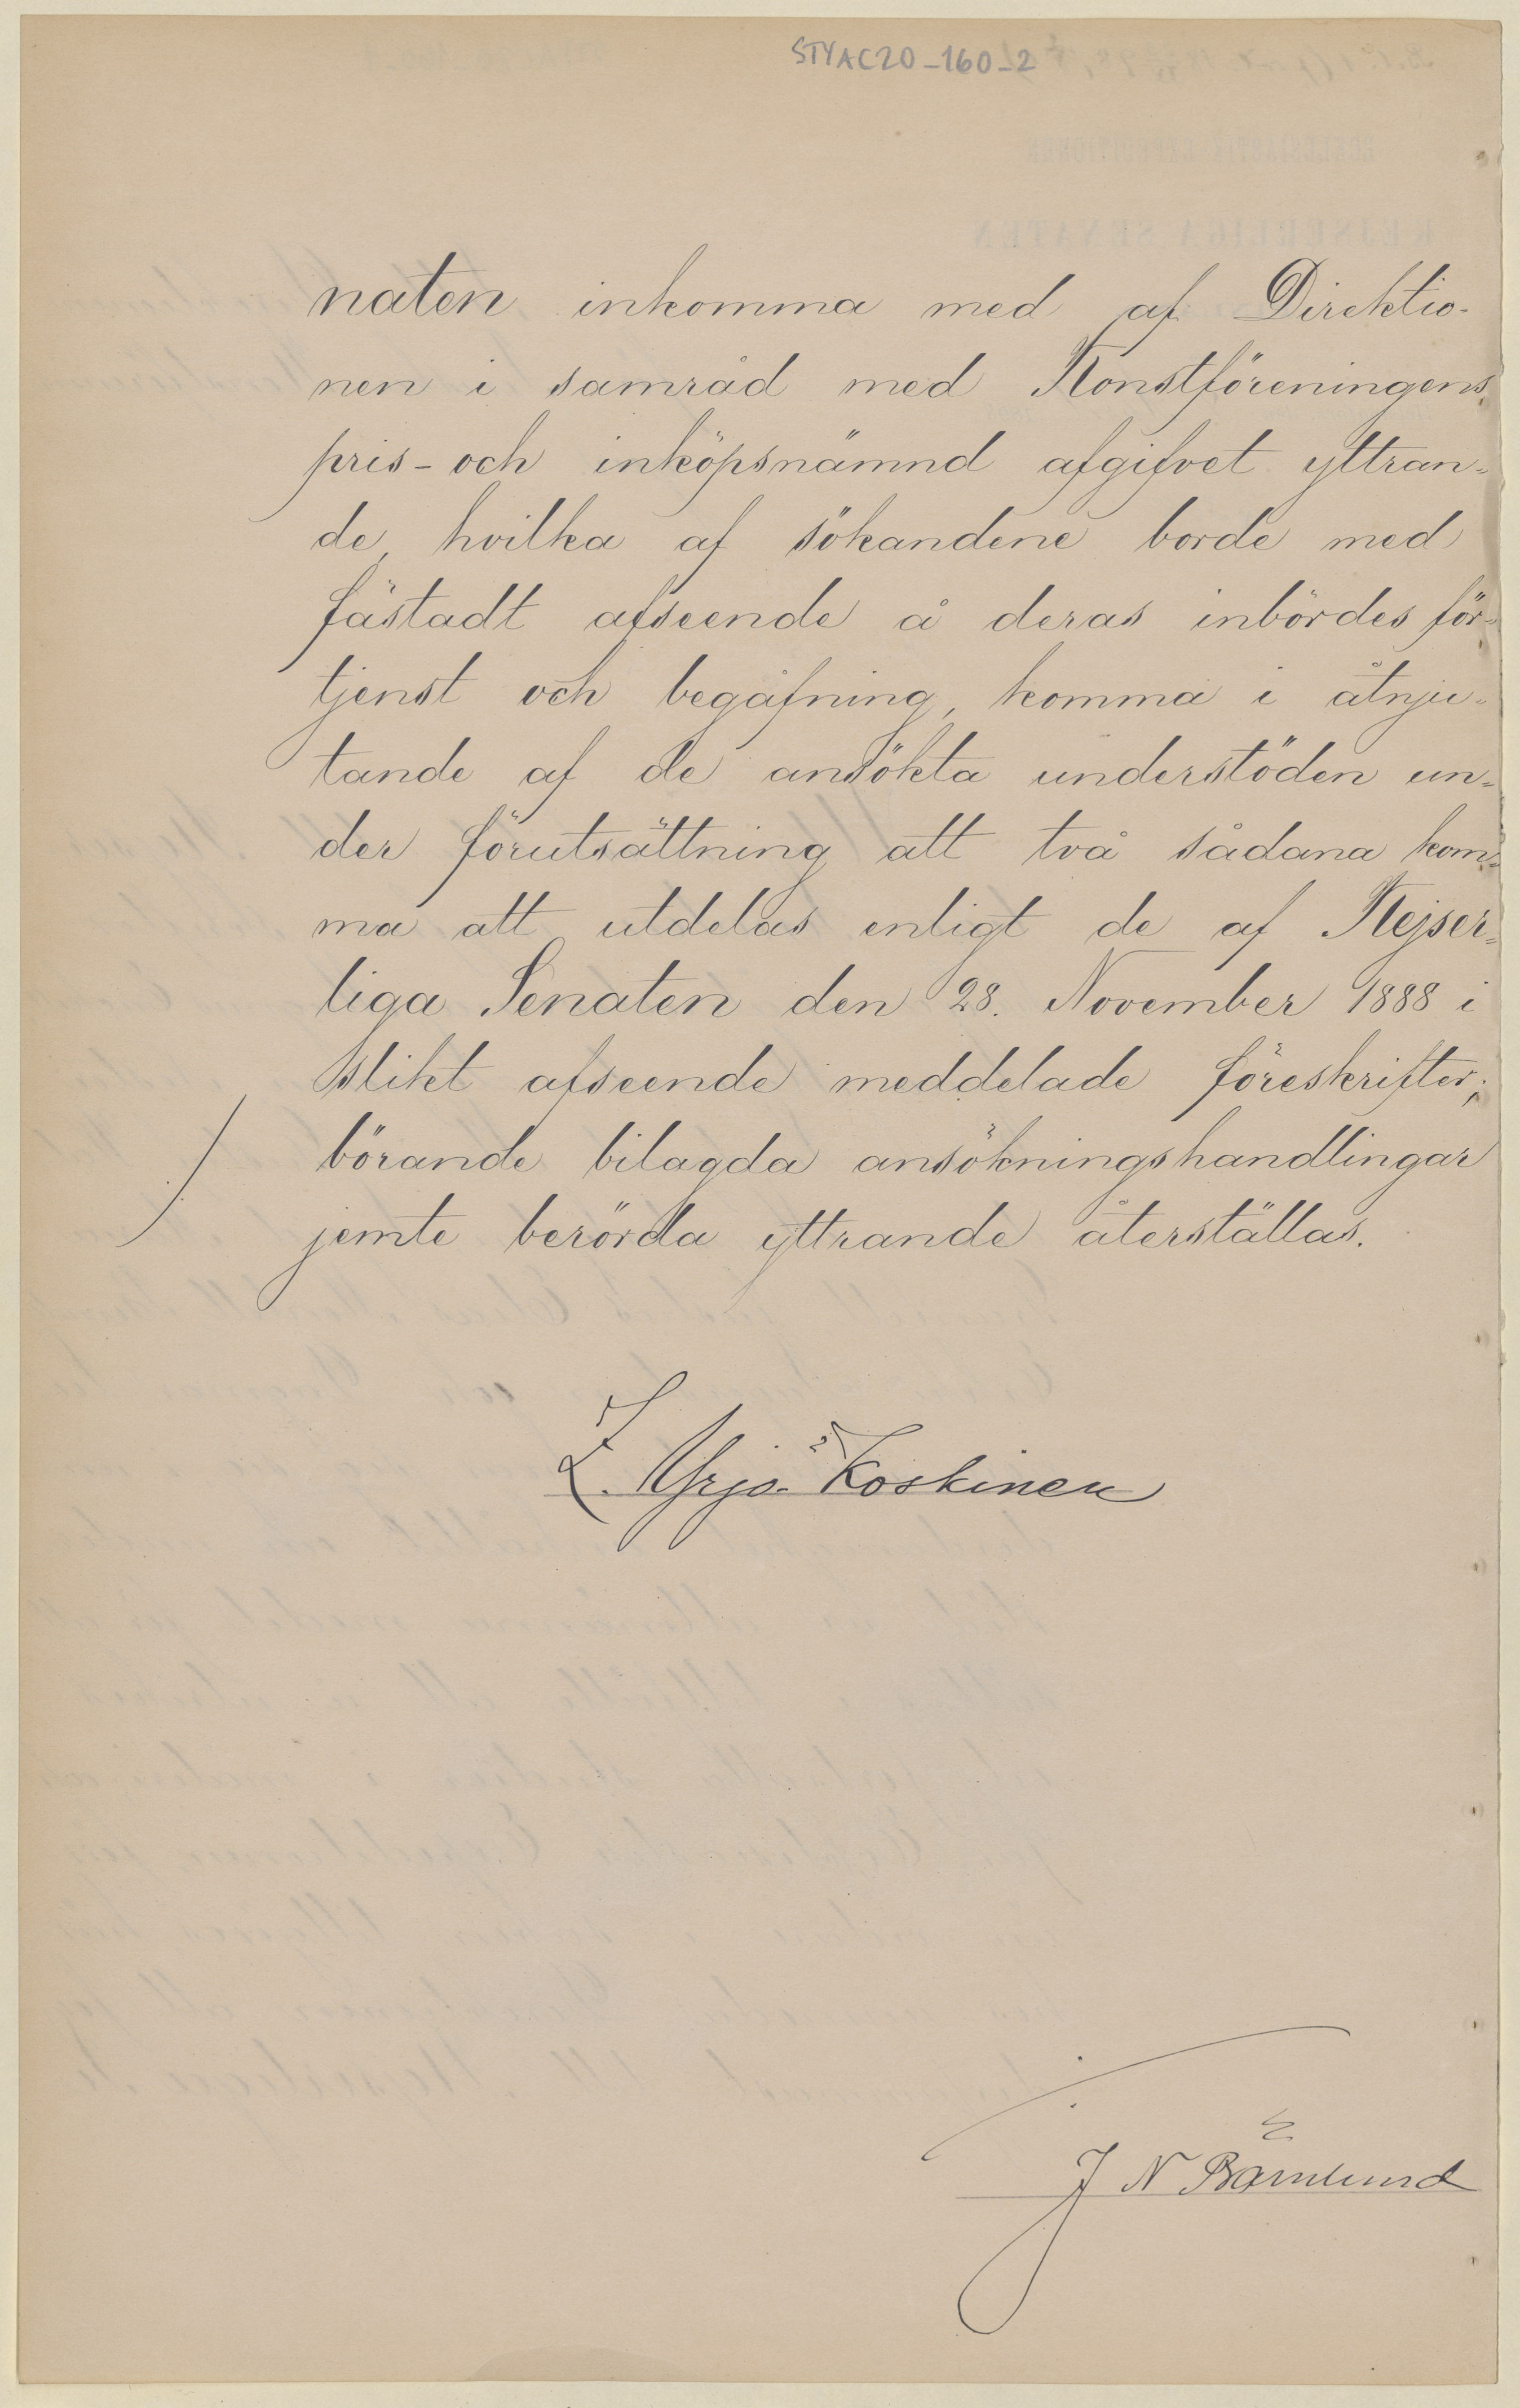 STYAC20-160-2
naten inkomma med af Direktio-
nen i samråd med Konstföreningens
pris- och inköpsnämnd afgifvet yttran-
de, hvilka af sökandene borde med
fästadt afseende å deras inbördes för-
tjenst och begåfning, komma i åtnju-
tande af de ansökta understöden un-
der förutsättning att två sådana kom-
ma att utdelas enligt de af Kejser-
liga Senaten den 28. November 1888 i
slikt afseende meddelade föreskrifter;
börande bilagda ansökningshandlingar
jemte berörda yttrande återställas.
Z. Yrjö-Koskinen
J N Bämlund